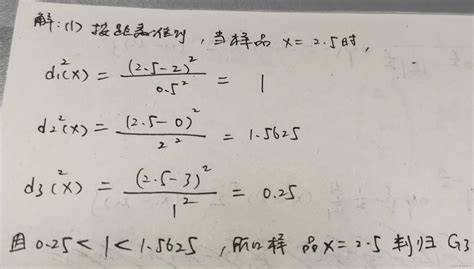 解:(1) 按距离准则,当样品 x=2.5时,
d₁²(x) = (2.5-2)²/0.5² = 1
d₂²(x) = (2.5-0)²/2² = 1.5625
d₃²(x) = (2.5-3)²/1² = 0.25
因 0.25<1<1.5625,所以样品x=2.5判归 G3